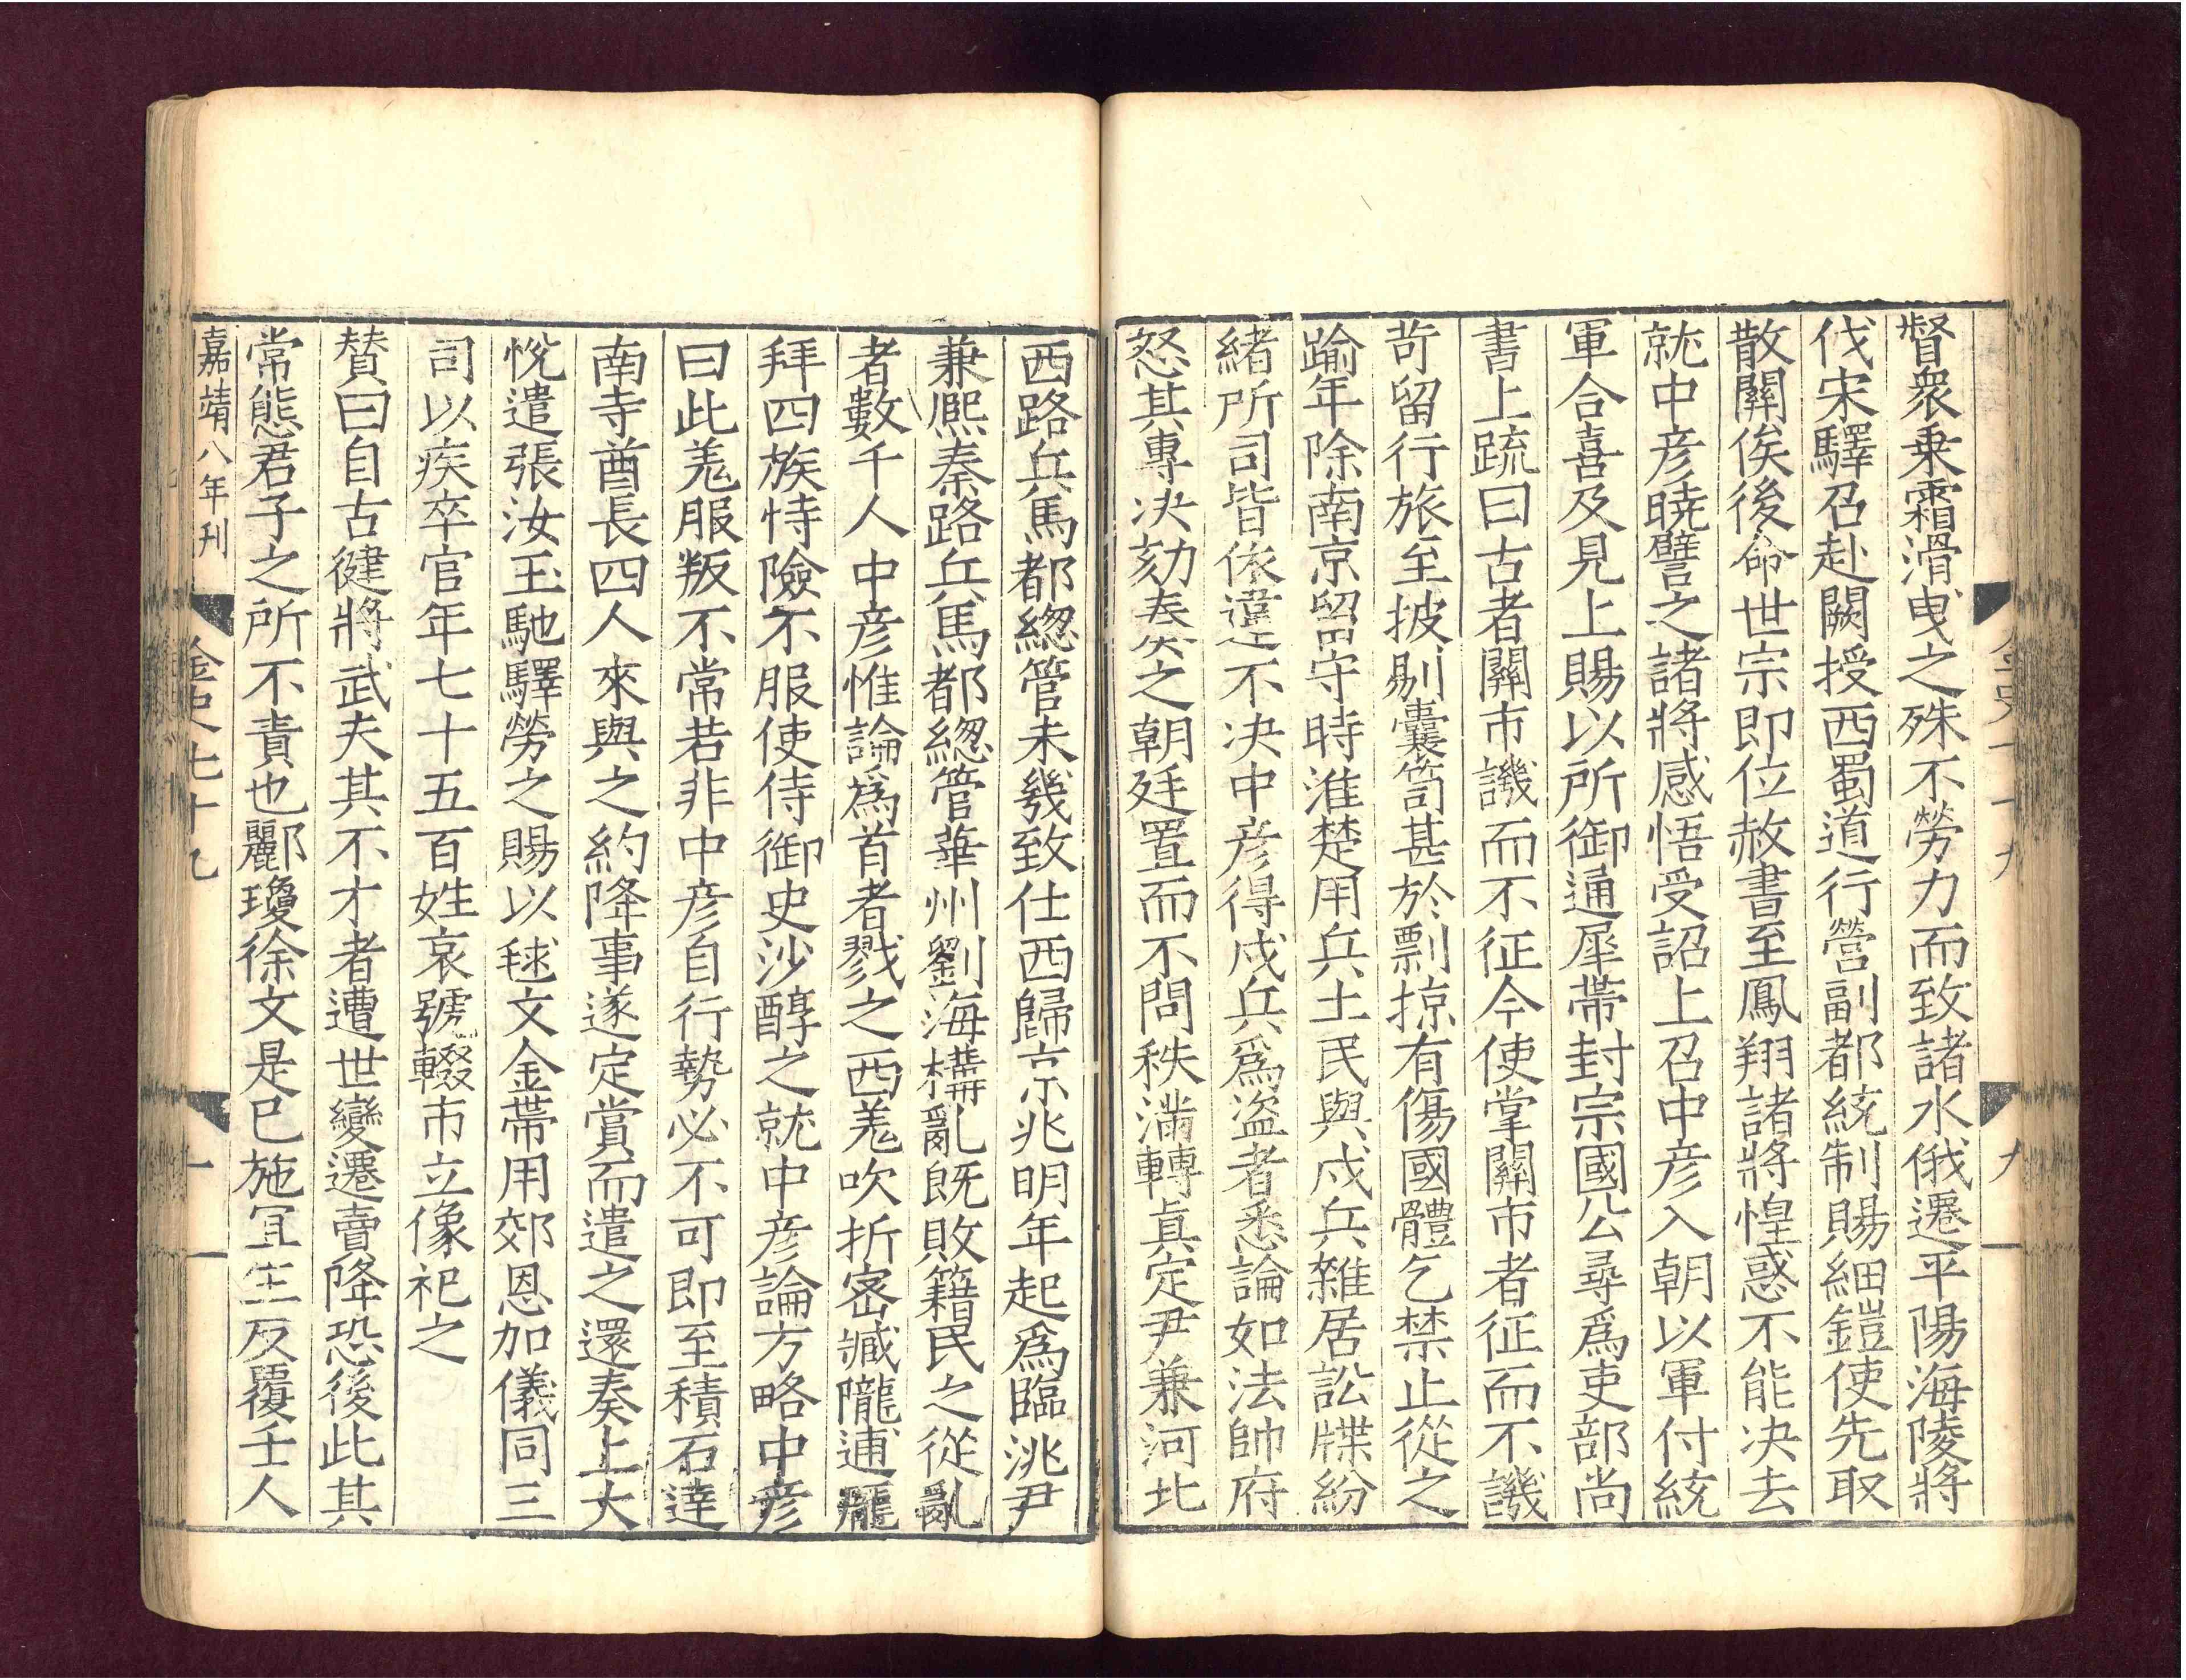 督衆乗霜滑曵之殊不勞力而致諸水俄遷平陽海陵將
伐宋驛召赴闕授西蜀道行營副都統制賜細鎧使先取
散關俟後命世宗即位赦書至鳳翔諸將惶惑不能决去
就中彦曉譬之諸將感悟受詔上召中彦入朝以軍付統
軍合喜及見上賜以所御通犀帶封宗國公尋爲吏部尚
書上疏曰古者關市譏而不征今使掌關市者征而不譏
苛留行旅至披剔囊笥甚於剽掠有傷國體乞禁止從之
踰年除南京留守時淮楚用兵土民與戍兵雜居訟牒紛
緒所司皆依違不决中彦得戍兵爲盗者悉論如法帥府
怒其專决劾奏之朝廷置而不問秩滿轉眞定尹兼河北
西路兵馬都緫管未幾致仕西歸京兆明年起爲臨洮尹
兼熈秦路兵馬都緫管鞏州劉海構亂旣敗籍民之從亂
者數千人中彦惟論爲首者戮之西羌吹折宻臧隴逋龎
拜四族恃險不服使侍御史沙醇之就中彦論方略中彦
曰此羌服叛不常若非中彦自行勢必不可即至積石達
南寺酋長四人來與之約降事遂定賞而遣之還奏上大
悅遣張汝玉馳驛勞之賜以毬文金帶用郊恩加儀同三
司以疾卒官年七十五百姓哀號輟市立像祀之
賛曰自古健將武夫其不才者遭世變遷賣降恐後此其
常態君子之所不責也酈瓊徐文是已施宜生反覆壬人
嘉靖八年刊
金史七十九